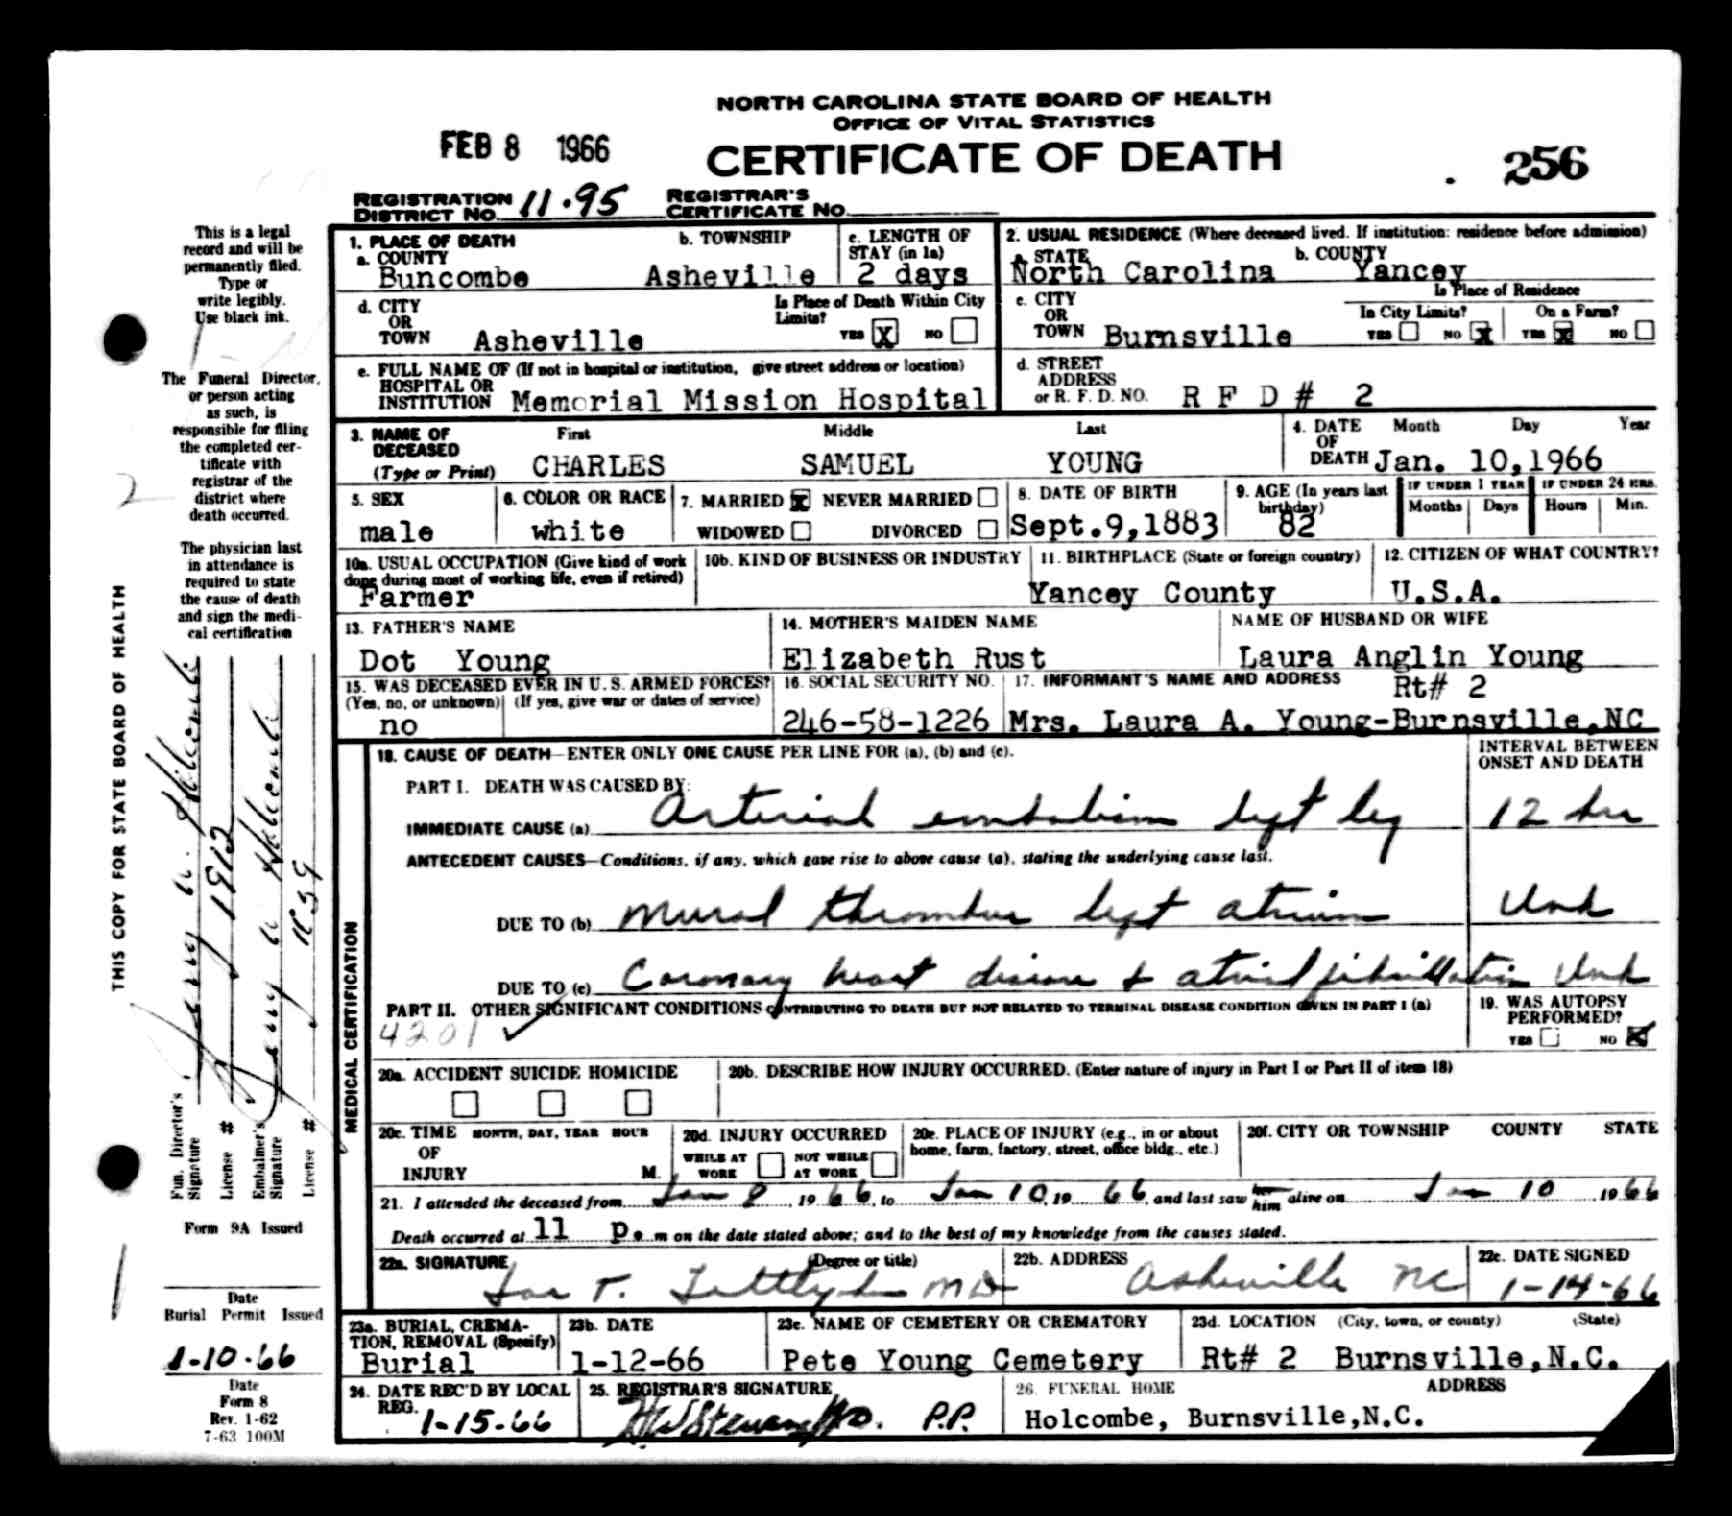 NORTH CAROLINA STATE BOARD OF HEALTH
OFFICE OF VITAL STATISTICS
FEB 8 1966
CERTIFICATE OF DEATH
256
REGISTRATION DISTRICT No. 11-95
REGISTRAR'S CERTIFICATE No.
This is a legal
record and will be
permanently filed.
Type or
write legibly.
Use black ink.
The Funeral Director,
or person acting
as such, is
responsible for filing
the completed cer-
tificate with
registrar of the
district where
death occurred.
The physician last
in attendance is
required to state
the cause of death
and sign the medi-
cal certification
THIS COPY FOR STATE BOARD OF HEALTH
Fun. Director's Signature
License # 1912
Embalmer's Signature
License #
Form 9A Issued
Date
Burial Permit Issued
1-10-66
Date
Form 8
Rev. 1-62
7-63 100M
1. PLACE OF DEATH
a. COUNTY
Buncombe
b. TOWNSHIP
Asheville
c. LENGTH OF STAY (in 1a)
2 days
2. USUAL RESIDENCE (Where deceased lived. If institution: residence before admission)
a. STATE
North Carolina
b. COUNTY
Yancey
d. CITY OR TOWN Asheville
Is Place of Death Within City Limits?
YES X NO
c. CITY OR TOWN Burnsville
Is Place of Residence
In City Limits? On a Farm?
YES NO X YES X NO
e. FULL NAME OF (If not in hospital or institution, give street address or location)
HOSPITAL OR
INSTITUTION Memorial Mission Hospital
d. STREET
ADDRESS
or R. F. D. NO. R F D # 2
3. NAME OF DECEASED
(Type or Print)
First Middle Last
CHARLES SAMUEL YOUNG
4. DATE OF DEATH
Month Day Year
Jan. 10,1966
5. SEX
male
6. COLOR OR RACE
white
7. MARRIED X NEVER MARRIED
WIDOWED DIVORCED
8. DATE OF BIRTH
Sept.9,1883
9. AGE (In years last birthday)
82
IF UNDER 1 YEAR IF UNDER 24 HRS.
Months Days Hours Min.
10a. USUAL OCCUPATION (Give kind of work
done during most of working life, even if retired)
Farmer
10b. KIND OF BUSINESS OR INDUSTRY
11. BIRTHPLACE (State or foreign country)
Yancey County
12. CITIZEN OF WHAT COUNTRY?
U.S.A.
13. FATHER'S NAME
Dot Young
14. MOTHER'S MAIDEN NAME
Elizabeth Rust
NAME OF HUSBAND OR WIFE
Laura Anglin Young
15. WAS DECEASED EVER IN U. S. ARMED FORCES?
(Yes, no, or unknown) (If yes, give war or dates of service)
no
16. SOCIAL SECURITY NO.
246-58-1226
17. INFORMANT'S NAME AND ADDRESS
Rt# 2
Mrs. Laura A. Young-Burnsville,NC
MEDICAL CERTIFICATION
18. CAUSE OF DEATH—ENTER ONLY ONE CAUSE PER LINE FOR (a), (b) and (c).
INTERVAL BETWEEN
ONSET AND DEATH
PART I. DEATH WAS CAUSED BY:
IMMEDIATE CAUSE (a) Arterial embolism left leg 12 hrs
ANTECEDENT CAUSES—Conditions, if any, which gave rise to above cause (a), stating the underlying cause last.
DUE TO (b) Mural thrombus left atrium Unk
DUE TO (c) Coronary heart disease & atrial fibrillation Unk
PART II. OTHER SIGNIFICANT CONDITIONS CONTRIBUTING TO DEATH BUT NOT RELATED TO TERMINAL DISEASE CONDITION GIVEN IN PART I (a)
4201
19. WAS AUTOPSY
PERFORMED?
YES NO X
20a. ACCIDENT SUICIDE HOMICIDE
20b. DESCRIBE HOW INJURY OCCURRED. (Enter nature of injury in Part I or Part II of item 18)
20c. TIME OF INJURY
MONTH, DAY, YEAR HOUR
M.
20d. INJURY OCCURRED
WHILE AT WORK NOT WHILE AT WORK
20e. PLACE OF INJURY (e.g., in or about
home, farm, factory, street, office bldg., etc.)
20f. CITY OR TOWNSHIP COUNTY STATE
21. I attended the deceased from Jan 8, 1966, to Jan 10, 1966, and last saw her him alive on Jan 10 1966
Death occurred at 11 p.m on the date stated above; and to the best of my knowledge from the causes stated.
22a. SIGNATURE (Degree or title)
MD
22b. ADDRESS
Asheville NC
22c. DATE SIGNED
1-14-66
23a. BURIAL, CREMA-
TION, REMOVAL (Specify)
Burial
23b. DATE
1-12-66
23c. NAME OF CEMETERY OR CREMATORY
Pete Young Cemetery
23d. LOCATION (City, town, or county) (State)
Rt# 2 Burnsville,N.C.
24. DATE REC'D BY LOCAL
REG.
1-15-66
25. REGISTRAR'S SIGNATURE
P.P.
26. FUNERAL HOME ADDRESS
Holcombe, Burnsville,N.C.